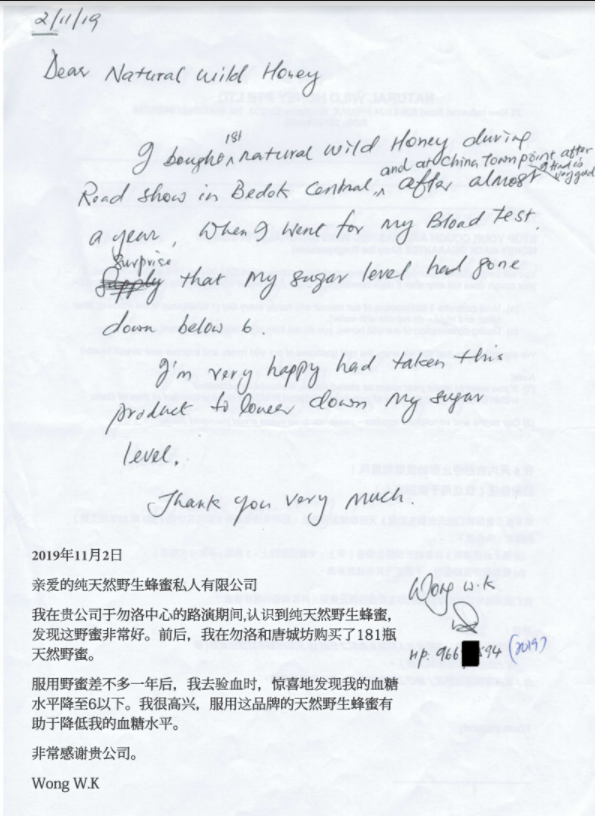 2/11/19
Dear Natural Wild Honey
I bought 1st natural Wild Honey during
and at China town point after
I find is
very good
Road show in Bedok Central, after almost
a year, when I went for my Blood Test.
surprise
that my sugar level had gone
down below 6.
I'm very happy had taken this
product to lower down my sugar
level.
Thank you very much.
2019年11月2日
亲爱的纯天然野生蜂蜜私人有限公司
我在贵公司于勿洛中心的路演期间,认识到纯天然野生蜂蜜,
发现这野蜜非常好。前后，我在勿洛和唐城坊购买了181瓶
天然野蜜。
服用野蜜差不多一年后，我去验血时，惊喜地发现我的血糖
水平降至6以下。我很高兴，服用这品牌的天然野生蜂蜜有
助于降低我的血糖水平。
非常感谢贵公司。
Wong W.K
Wong W.K
HP. 966 594 (2019)